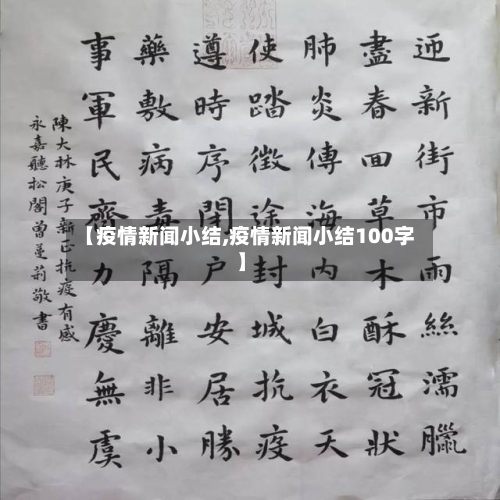 迎新街市雨絲濡臘
盡春回草木酥冠狀
肺炎傳海内白衣天
使踏徵途封城抗疫
遵時序閉户安居勝
藥敷病毒隔離非小
事軍民齊力慶無虞
陳大林庚子新正抗疫有感
永嘉聽松閣曾蔓莉敬書
【疫情新闻小结,疫情新闻小结100字
】